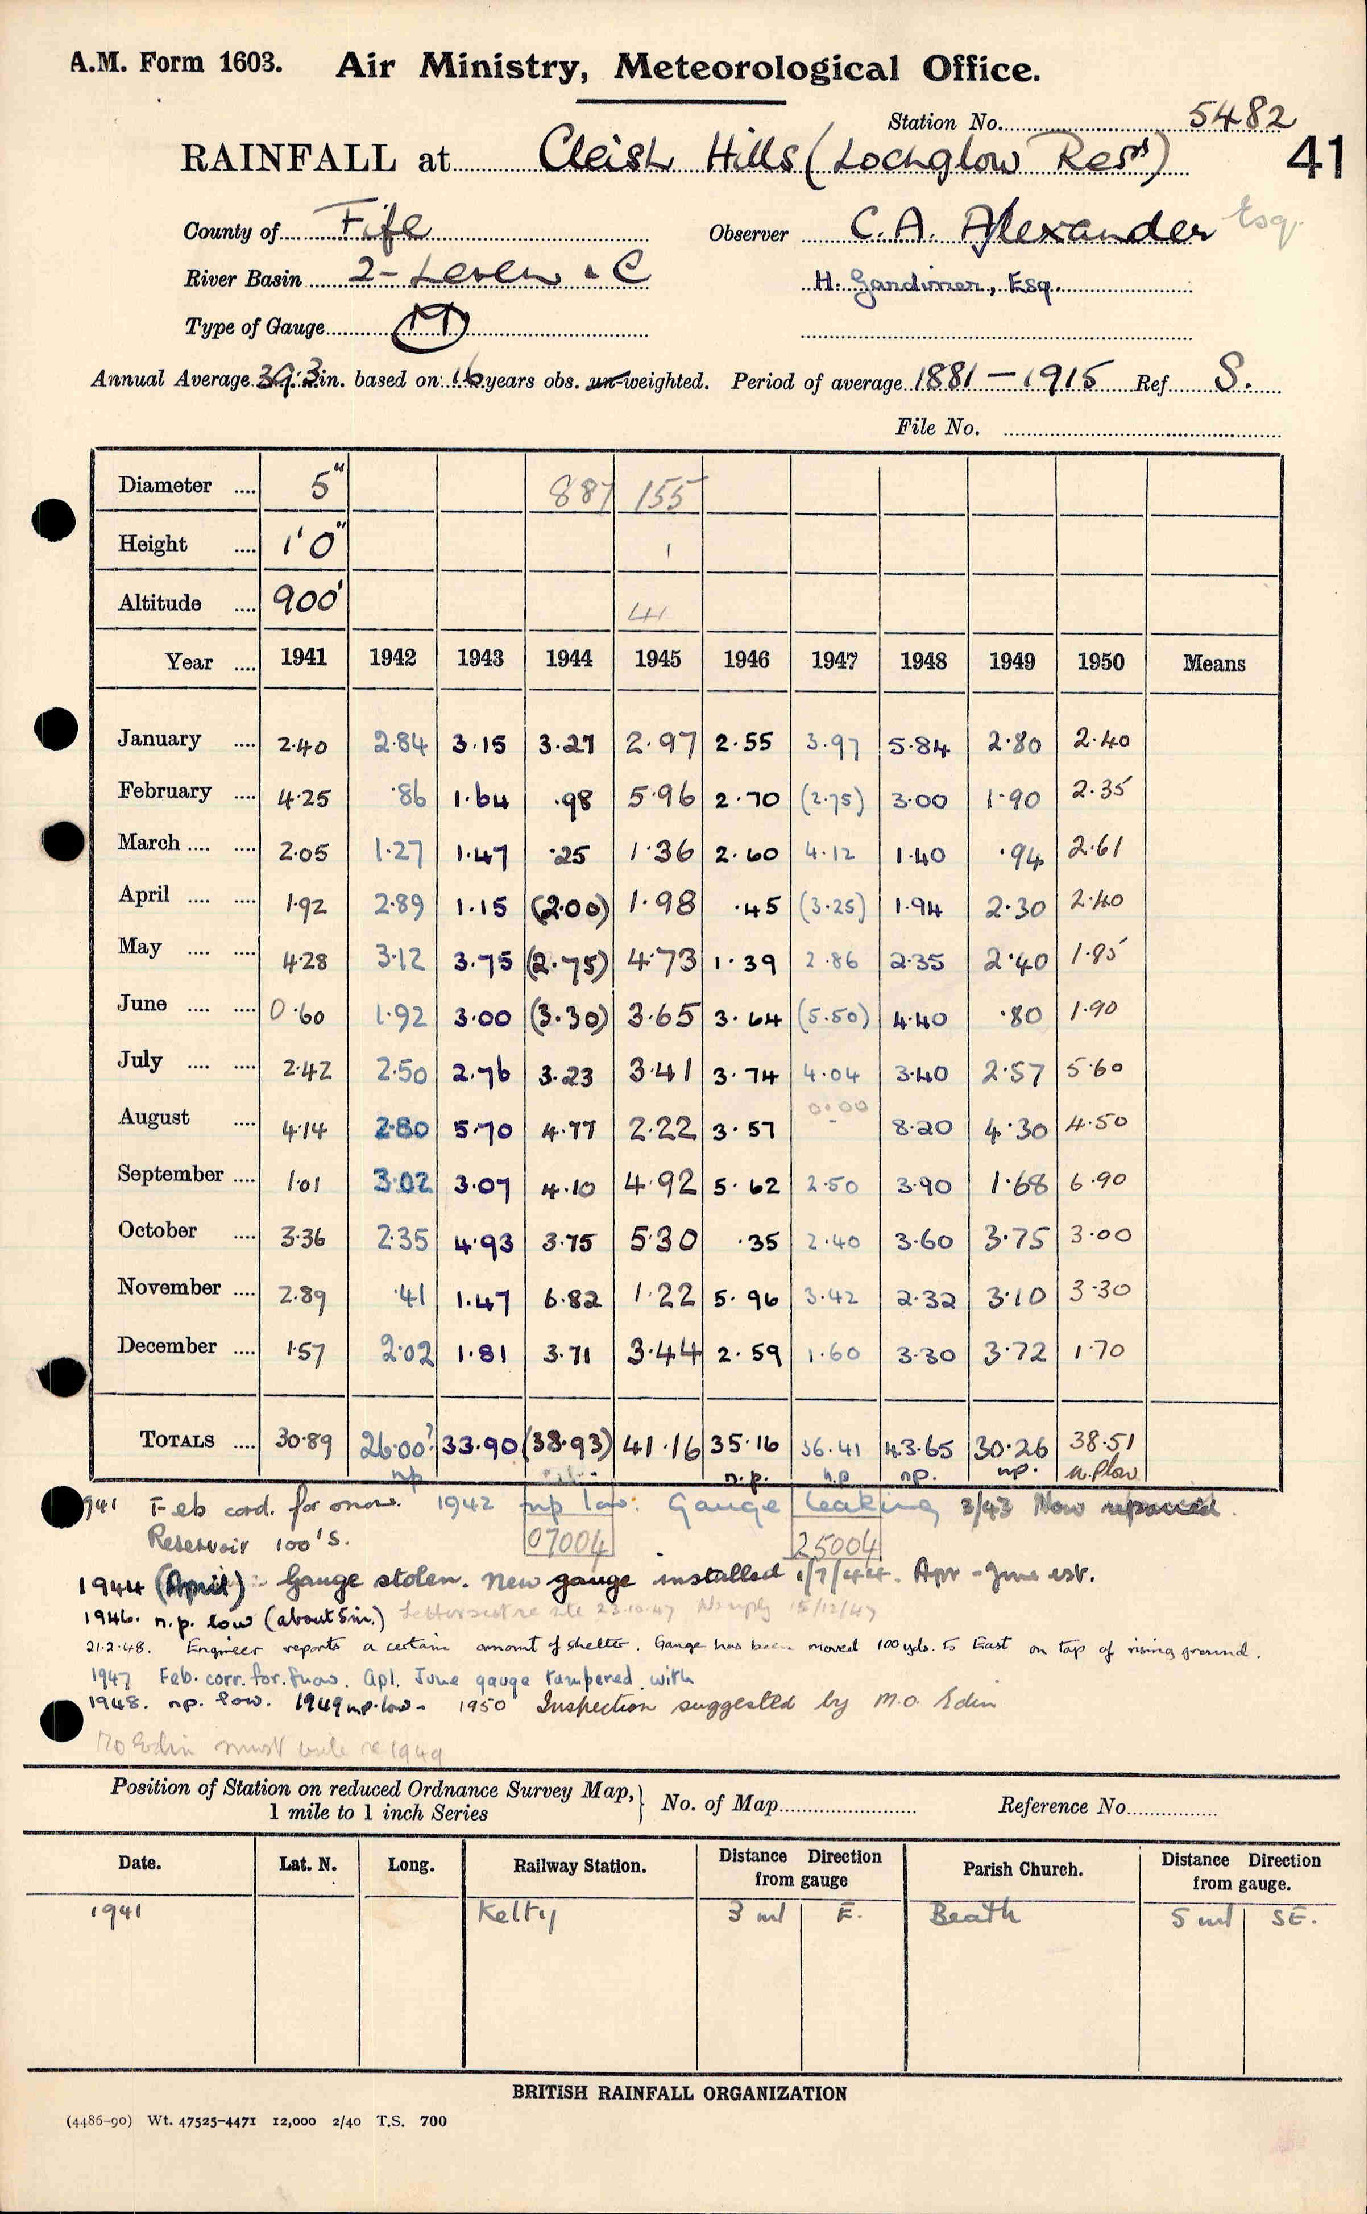 A.M. Form 1603. Air Ministry, Meteorological Office.
Station No. 5482
RAINFALL at Cleish Hills (Lochglow Resr) 41
County of Fife Observer C. A. Alexander Esq.
River Basin 2 - Leven & C H. Gardiner, Esq.
Type of Gauge M
Annual Average 39.3 in. based on 16 years obs. un-weighted. Period of average 1881 - 1915 Ref S.
File No.
Diameter 5" 887 155
Height 1' 0" 1
Altitude 900' 41
Year 1941 1942 1943 1944 1945 1946 1947 1948 1949 1950 Means
January 2.40 2.84 3.15 3.27 2.97 2.55 3.97 5.84 2.80 2.40
February 4.25 .86 1.64 .98 5.96 2.70 (2.75) 3.00 1.90 2.35
March 2.05 1.27 1.47 .25 1.36 2.60 4.12 1.40 .94 2.61
April 1.92 2.89 1.15 (2.00) 1.98 .45 (3.25) 1.94 2.30 2.40
May 4.28 3.12 3.75 (2.75) 4.73 1.39 2.86 2.35 2.40 1.85
June 0.60 1.92 3.00 (3.30) 3.65 3.64 (5.50) 4.40 .80 1.90
July 2.42 2.50 2.76 3.23 3.41 3.74 4.04 3.40 2.57 5.60
0.00
August 4.14 2.80 5.70 4.77 2.22 3.57 - 8.20 4.30 4.50
September 1.01 3.02 3.07 4.10 4.92 5.62 2.50 3.90 1.68 6.90
October 3.36 2.35 4.93 3.75 5.30 .35 2.40 3.60 3.75 3.00
November 2.89 .41 1.47 6.82 1.22 5.96 3.42 2.32 3.10 3.30
December 1.57 2.02 1.81 3.71 3.44 2.59 1.60 3.30 3.72 1.70
TOTALS 30.89 26.00? 33.90 (38.93) 41.16 35.16 36.41 43.65 30.26 38.51
np n.p. n.p np. np. n.p low
1941 Feb cord. for snow. 1942 np low. Gauge leaking 3/43 Now repaired.
Reservoir 100's. 07004 25004
1944 (April) Gauge stolen. New gauge installed 1/7/44. Apr - June est.
1946. n.p. low (about 5 in.) Letter sent re site 23.10.47 No reply 15/12/47
21.2.48. Engineer reports a certain amount of shelter. Gauge has been moved 100 yds. to East on top of rising ground.
1947 Feb. corr. for snow. Apl. June gauge tampered with
1948. np. low. 1949 np. low - 1950 Inspection suggested by M.O. Edin
MO Edin must write re 1949
Position of Station on reduced Ordnance Survey Map, 1 mile to 1 inch Series } No. of Map Reference No.
Date. Lat. N. Long. Railway Station. Distance Direction from gauge Parish Church. Distance Direction from gauge.
1941 Kelty 3 ml E. Beath 5 ml SE.
BRITISH RAINFALL ORGANIZATION
(4486-90) Wt. 47525-4471 12,000 2/40 T.S. 700